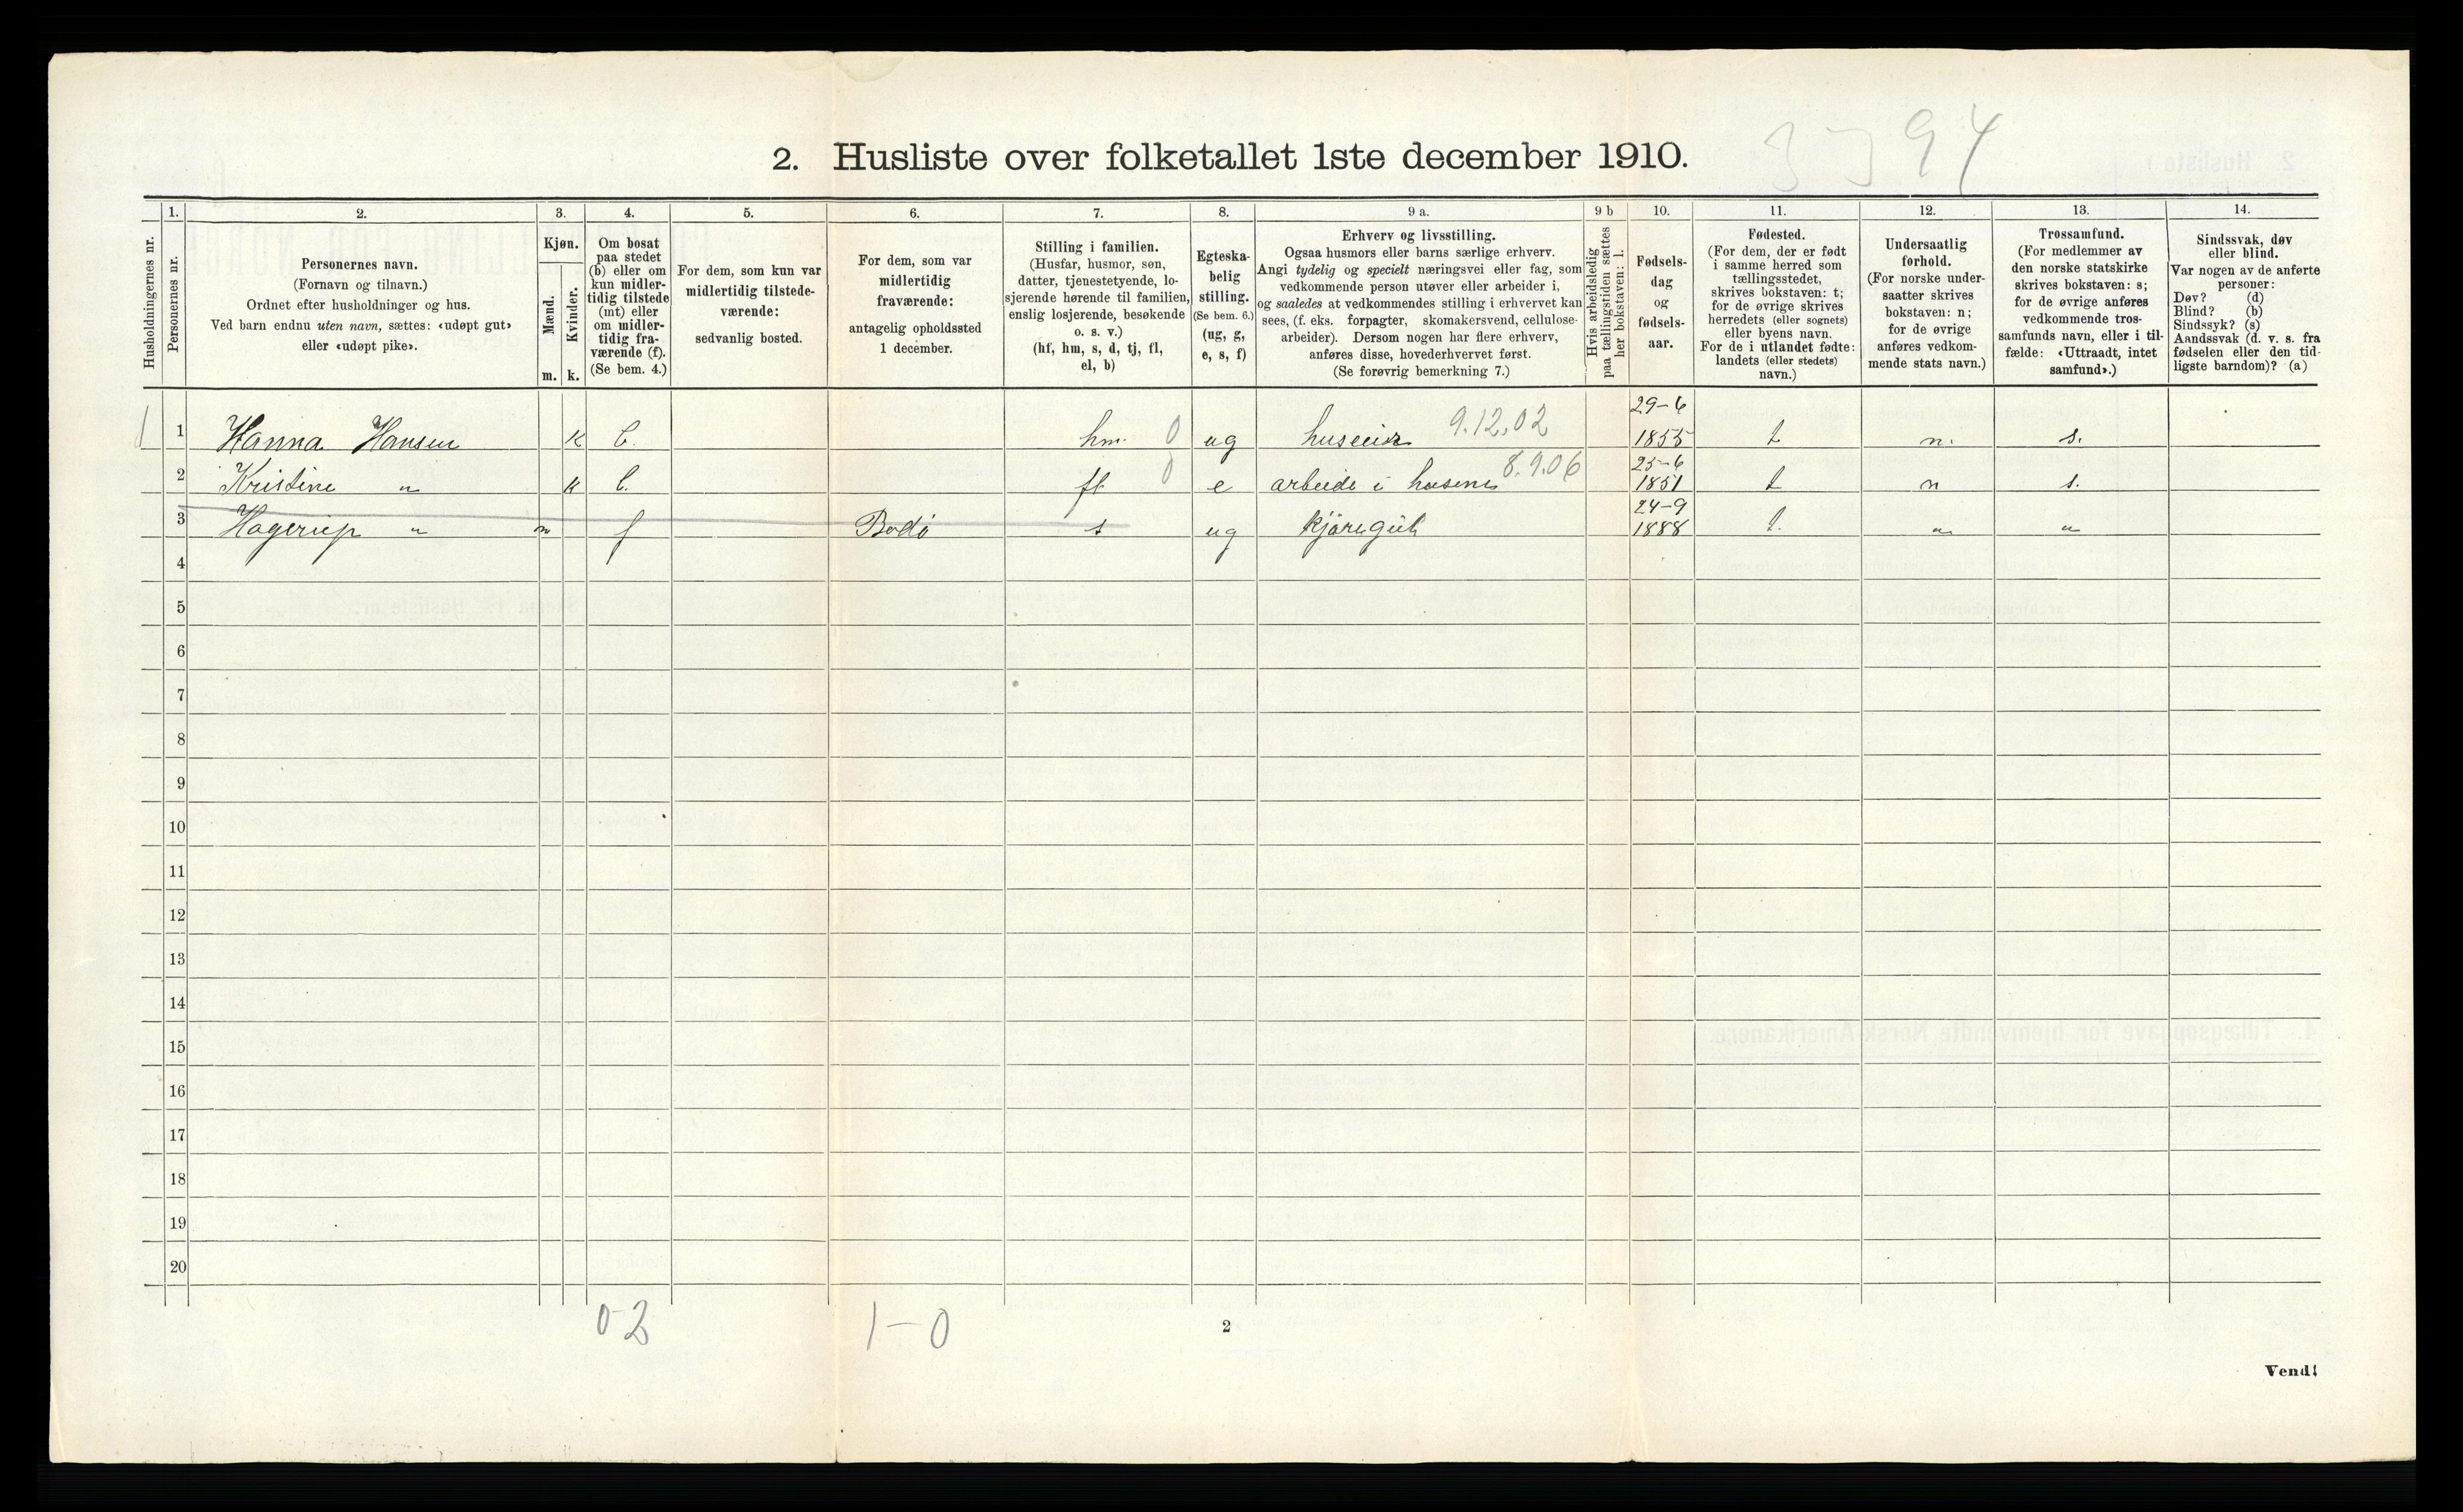 3394
2. Husliste over folketallet 1ste december 1910.
Husholdningernes nr.
1.
Personernes nr.
2.
Personernes navn.
(Fornavn og tilnavn.)
Ordnet efter husholdninger og hus.
Ved barn endnu uten navn, sættes: «udøpt gut»
eller «udøpt pike».
3.
Kjøn.
Mænd.
Kvinder.
m. k.
4.
Om bosat
paa stedet
(b) eller om
kun midler-
tidig tilstede
(mt) eller
om midler-
tidig fra-
værende (f).
(Se bem. 4.)
5.
For dem, som kun var
midlertidig tilstede-
værende:
sedvanlig bosted.
6.
For dem, som var
midlertidig
fraværende:
antagelig opholdssted
1 december.
7.
Stilling i familien.
(Husfar, husmor, søn,
datter, tjenestetyende, lo-
sjerende hørende til familien,
enslig losjerende, besøkende
o. s. v.)
(hf, hm, s, d, tj, fl,
el, b)
8.
Egteska-
belig
stilling.
(Se bem. 6.)
(ug, g,
e, s, f)
9 a.
Erhverv og livsstilling.
Ogsaa husmors eller barns særlige erhverv.
Angi tydelig og specielt næringsvei eller fag, som
vedkommende person utøver eller arbeider i,
og saaledes at vedkommendes stilling i erhvervet kan
sees, (f. eks. forpagter, skomakersvend, cellulose-
arbeider). Dersom nogen har flere erhverv,
anføres disse, hovederhvervet først.
(Se forøvrig bemerkning 7.)
9 b
Hvis arbeidsledig
paa tællingstiden sættes
her bokstaven: l.
10.
Fødsels-
dag
og
fødsels-
aar.
11.
Fødested.
(For dem, der er født
i samme herred som
tællingsstedet,
skrives bokstaven: t;
for de øvrige skrives
herredets (eller sognets)
eller byens navn.
For de i utlandet fødte:
landets (eller stedets)
navn.)
12.
Undersaatlig
forhold.
(For norske under-
saatter skrives
bokstaven: n;
for de øvrige
anføres vedkom-
mende stats navn.)
13.
Trossamfund.
(For medlemmer av
den norske statskirke
skrives bokstaven: s;
for de øvrige anføres
vedkommende tros-
samfunds navn, eller i til-
fælde: «Uttraadt, intet
samfund».)
14.
Sindssvak, døv
eller blind.
Var nogen av de anførte
personer:
Døv? (d)
Blind? (b)
Sindssyk? (s)
Aandssvak (d. v. s. fra
fødselen eller den tid-
ligste barndom)? (a)
1 1 Hanna Hansen k b. hm. 0 ug huseier 9.12.02 29-6 1855 t n. s.
2 Kristine " k b. fl 0 e arbeide i huset 8.9.06 25-6 1851 t n s.
3 Hagerup " m f Bodø s ug kjøregut 24-9 1888 t. " "
4
5
6
7
8
9
10
11
12
13
14
15
16
17
18
19
20
0-2 1-0
2
Vend!